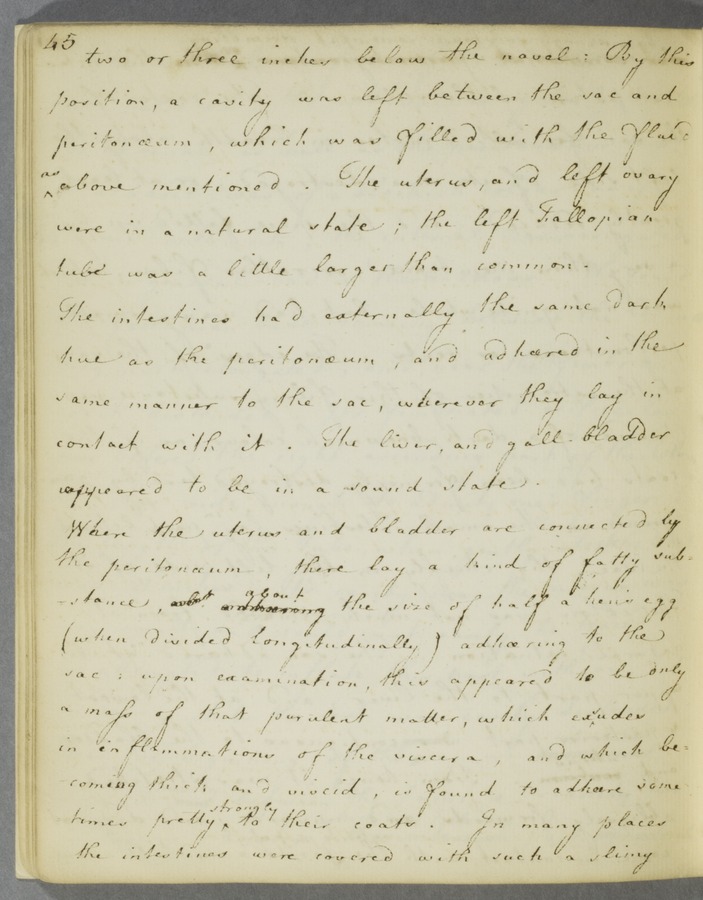 45
two or three inches below the navel : By this
position, a cavity was left between the sac and
peritonæum, which was filled with the fluid
as
above mentioned. The uterus, and left ovary
were in a natural state ; the left Fallopian
tube was a little larger than common.
The intestines had externally the same dark
hue as the peritonæum, and adhæred in the
same manner to the sac, wherever they lay in
contact with it. The liver, and gall-bladder
appeared to be in a sound state.
Where the uterus and bladder are connected by
the peritonæum, there lay a kind of fatty sub=
-stance, about the size of half a hen's egg
(when divided longitudinally) adhæring to the
sac : upon examination, this appeared to be only
a mass of that purulent matter, which exudes
in inflammations of the viscera, and which be-
coming thick and viscid, is found to adhære some
times pretty strongly to their coats. In many places
the intestines were covered with such a slimy